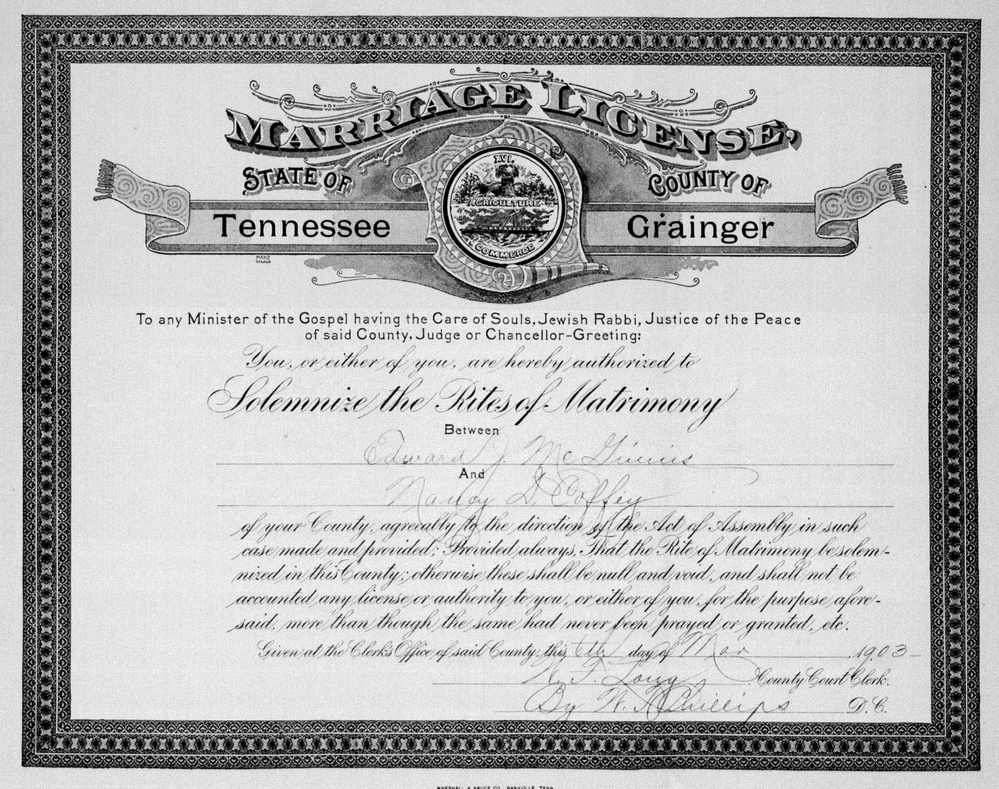 MARRIAGE LICENSE,
STATE OF
COUNTY OF
XVI.
AGRICULTURE
COMMERCE
Tennessee
Grainger
To any Minister of the Gospel having the Care of Souls, Jewish Rabbi, Justice of the Peace
of said County, Judge or Chancellor-Greeting:
You, or either of you, are hereby authorized to
Solemnize the Rites of Matrimony
Between
Edward J. McGinnis
And
Nancy D Coffey
of your County, agreeably to the direction of the Act of Assembly in such
case made and provided; Provided always, That the Rite of Matrimony be solem-
nized in this County; otherwise these shall be null and void, and shall not be
accounted any license or authority to you, or either of you, for the purpose afore-
said, more than though the same had never been prayed or granted, etc.
Given at the Clerk's Office of said County, this day of Mar 1903
Long County Court Clerk.
By Phillips D. C.
MARSHALL & BRUCE CO. NASHVILLE, TENN.